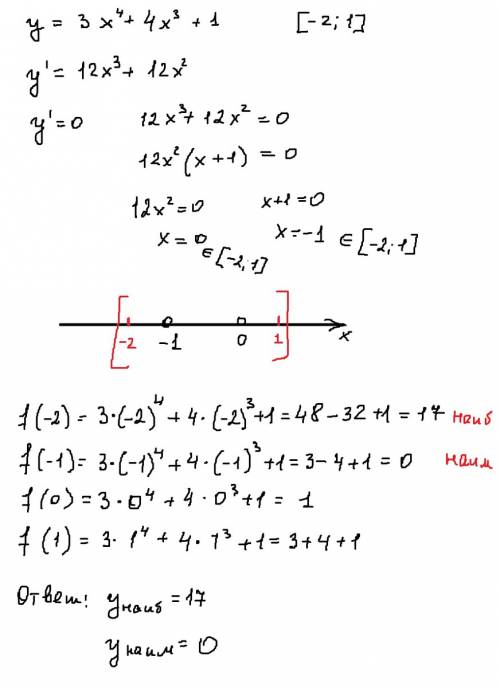 y = 3x⁴ + 4x³ + 1 [-2; 1]
y' = 12x³ + 12x²
y' = 0 12x³ + 12x² = 0
12x²(x + 1) = 0
12x² = 0 x+1 = 0
x = 0 ∈ [-2; 1] x = -1 ∈ [-2; 1]
-2 -1 0 1 x
f(-2) = 3·(-2)⁴ + 4·(-2)³ + 1 = 48 - 32 + 1 = 17 наиб
f(-1) = 3·(-1)⁴ + 4·(-1)³ + 1 = 3 - 4 + 1 = 0 наим
f(0) = 3·0⁴ + 4·0³ + 1 = 1
f(1) = 3·1⁴ + 4·1³ + 1 = 3 + 4 + 1
Ответ: y наиб = 17
y наим = 0